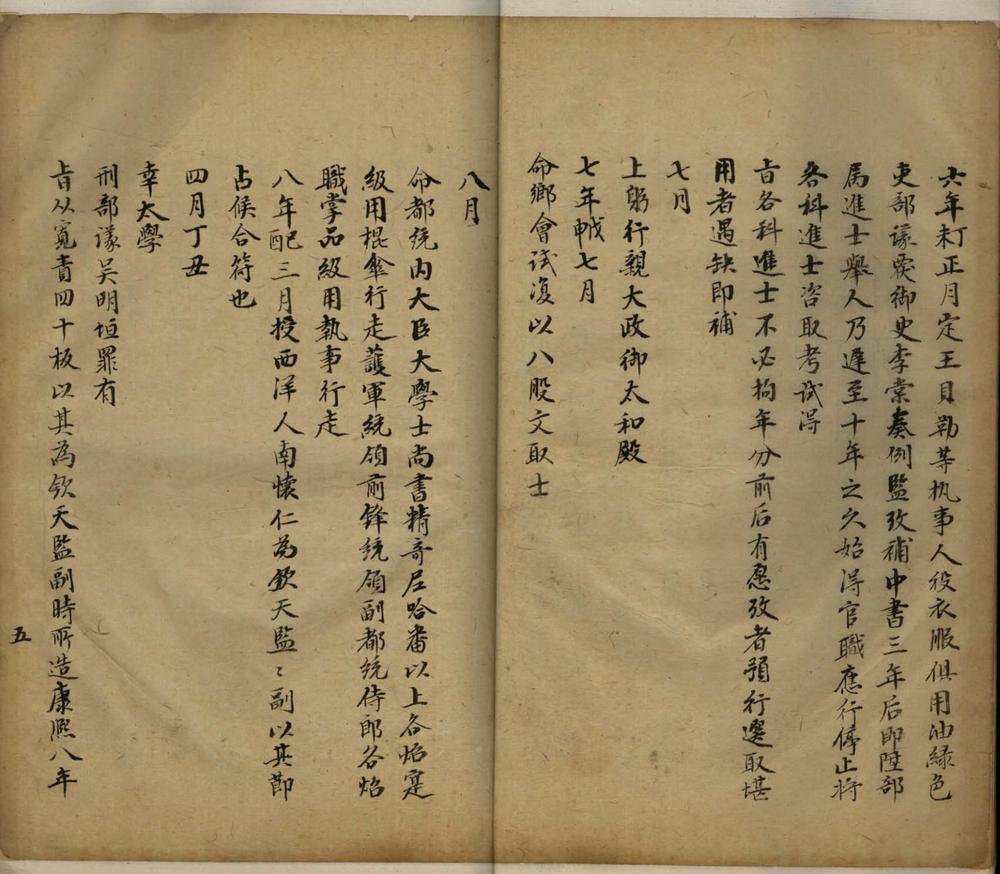 六年丁未正月定王貝勒等执事人役衣服俱用油緑色
吏部議覆御史李棠奏例監攷補中書三年后即陞部
属進士舉人乃遲至十年之久始得官職應行停止将
各科進士咨取考試得
旨各科進士不必拘年分前后有愿攷者預行選取堪
用者遇缺即補
七月
上躬行親大政御太和殿
七年戊申七月
命鄉會试復以八股文取士
八月
命都统内大臣大學士尚書精奇尼哈番以上各炤定
級用棍傘行走護軍統領前鋒统领副都统侍郎各炤
職掌品級用執事行走
八年己酉三月授西洋人南懷仁為欽天監〻副以其節
占候合符也
四月丁丑
幸太學
刑部議吴明烜罪有
旨从寬責四十板以其為欽天監副時所造康熙八年
五